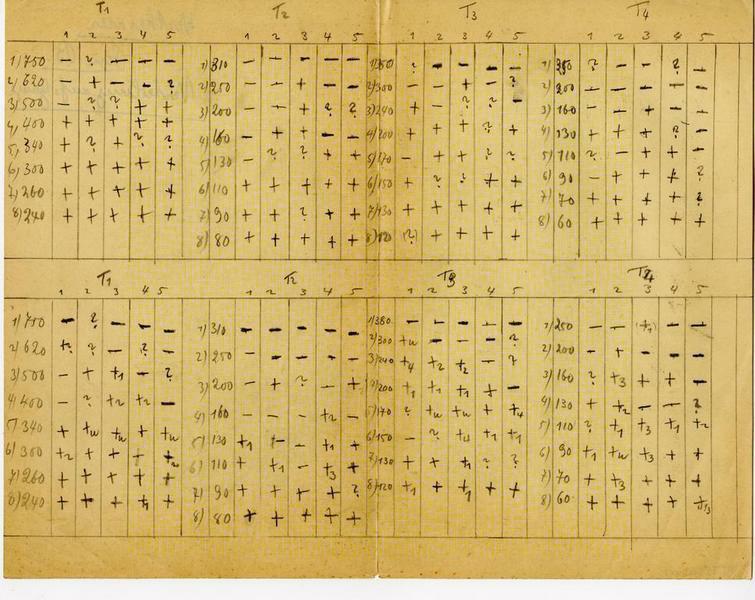 T1 T2 T3 T4
1 2 3 4 5 1 2 3 4 5 1 2 3 4 5 1 2 3 4 5
1) 750 – ? – – – 1) 310 – – – – – ? – – – – ? – – ? –
2) 620 – + – – ? 2) 250 – – + – – 2) 300 – – + – ? 2) 200 – – – – –
3) 500 – ? ? + + 3) 200 – – + ? ? 3) 240 + – ? ? – 3) 160 – – + – –
4) 400 + + + + + 4) 160 – + + – – 4) 200 + + + ? + 4) 130 – + + ? –
5) 340 + ? + ? ? 5) 130 – ? ? + + 5) 170 – + + ? ? 5) 110 ? – + + –
6) 300 + + + + + 6) 110 + + + + + 6) 150 + ? ? + + 6) 90 – + + + ?
7) 260 + + + + + 7) 90 + + ? + + 7) 130 + + + + + 7) 70 + + + + ?
8) 240 + + + + + 8) 80 + + + + + 8) 120 (?) + + + + 8) 60 + + + + +
T1 T2 T3 T4
1 2 3 4 5 1 2 3 4 5 1 2 3 4 5 1 2 3 4 5
1) 750 – ? – – – 1) 310 – – – – – 1) 380 – – – – – 1) 250 – – – –
2) 620 ? – ? – 2) 250 – – – – – 2) 300 – – – ? 2) 200 – + – – –
3) 500 – + +1 – ? 3) 200 – + ? – + 3) 240 +2 +2 – ? 3) 160 ? +3 + + +
4) 400 – ? +2 +2 – 4) 160 – – – +2 – 200 +1 +1 + + – 4) 130 + +2 – – ?
5) 340 + + 5) 130 +1 – +1 + 5) 170 ? + +4 5) 110 ? +1 +3 +1 +2
6) 300 +2 + + + 6) 110 – +1 – +3 + 6) 150 – ? +4 +1 +1 6) 90 +1 +3 + +
7) 260 + + + + + 7) 90 + + + + ? 7) 130 + + ? ? 7) 70 + +3 + + +
8) 240 + + + + 8) 80 + + + + + 8) 120 +1 + + + 8) 60 + + + +